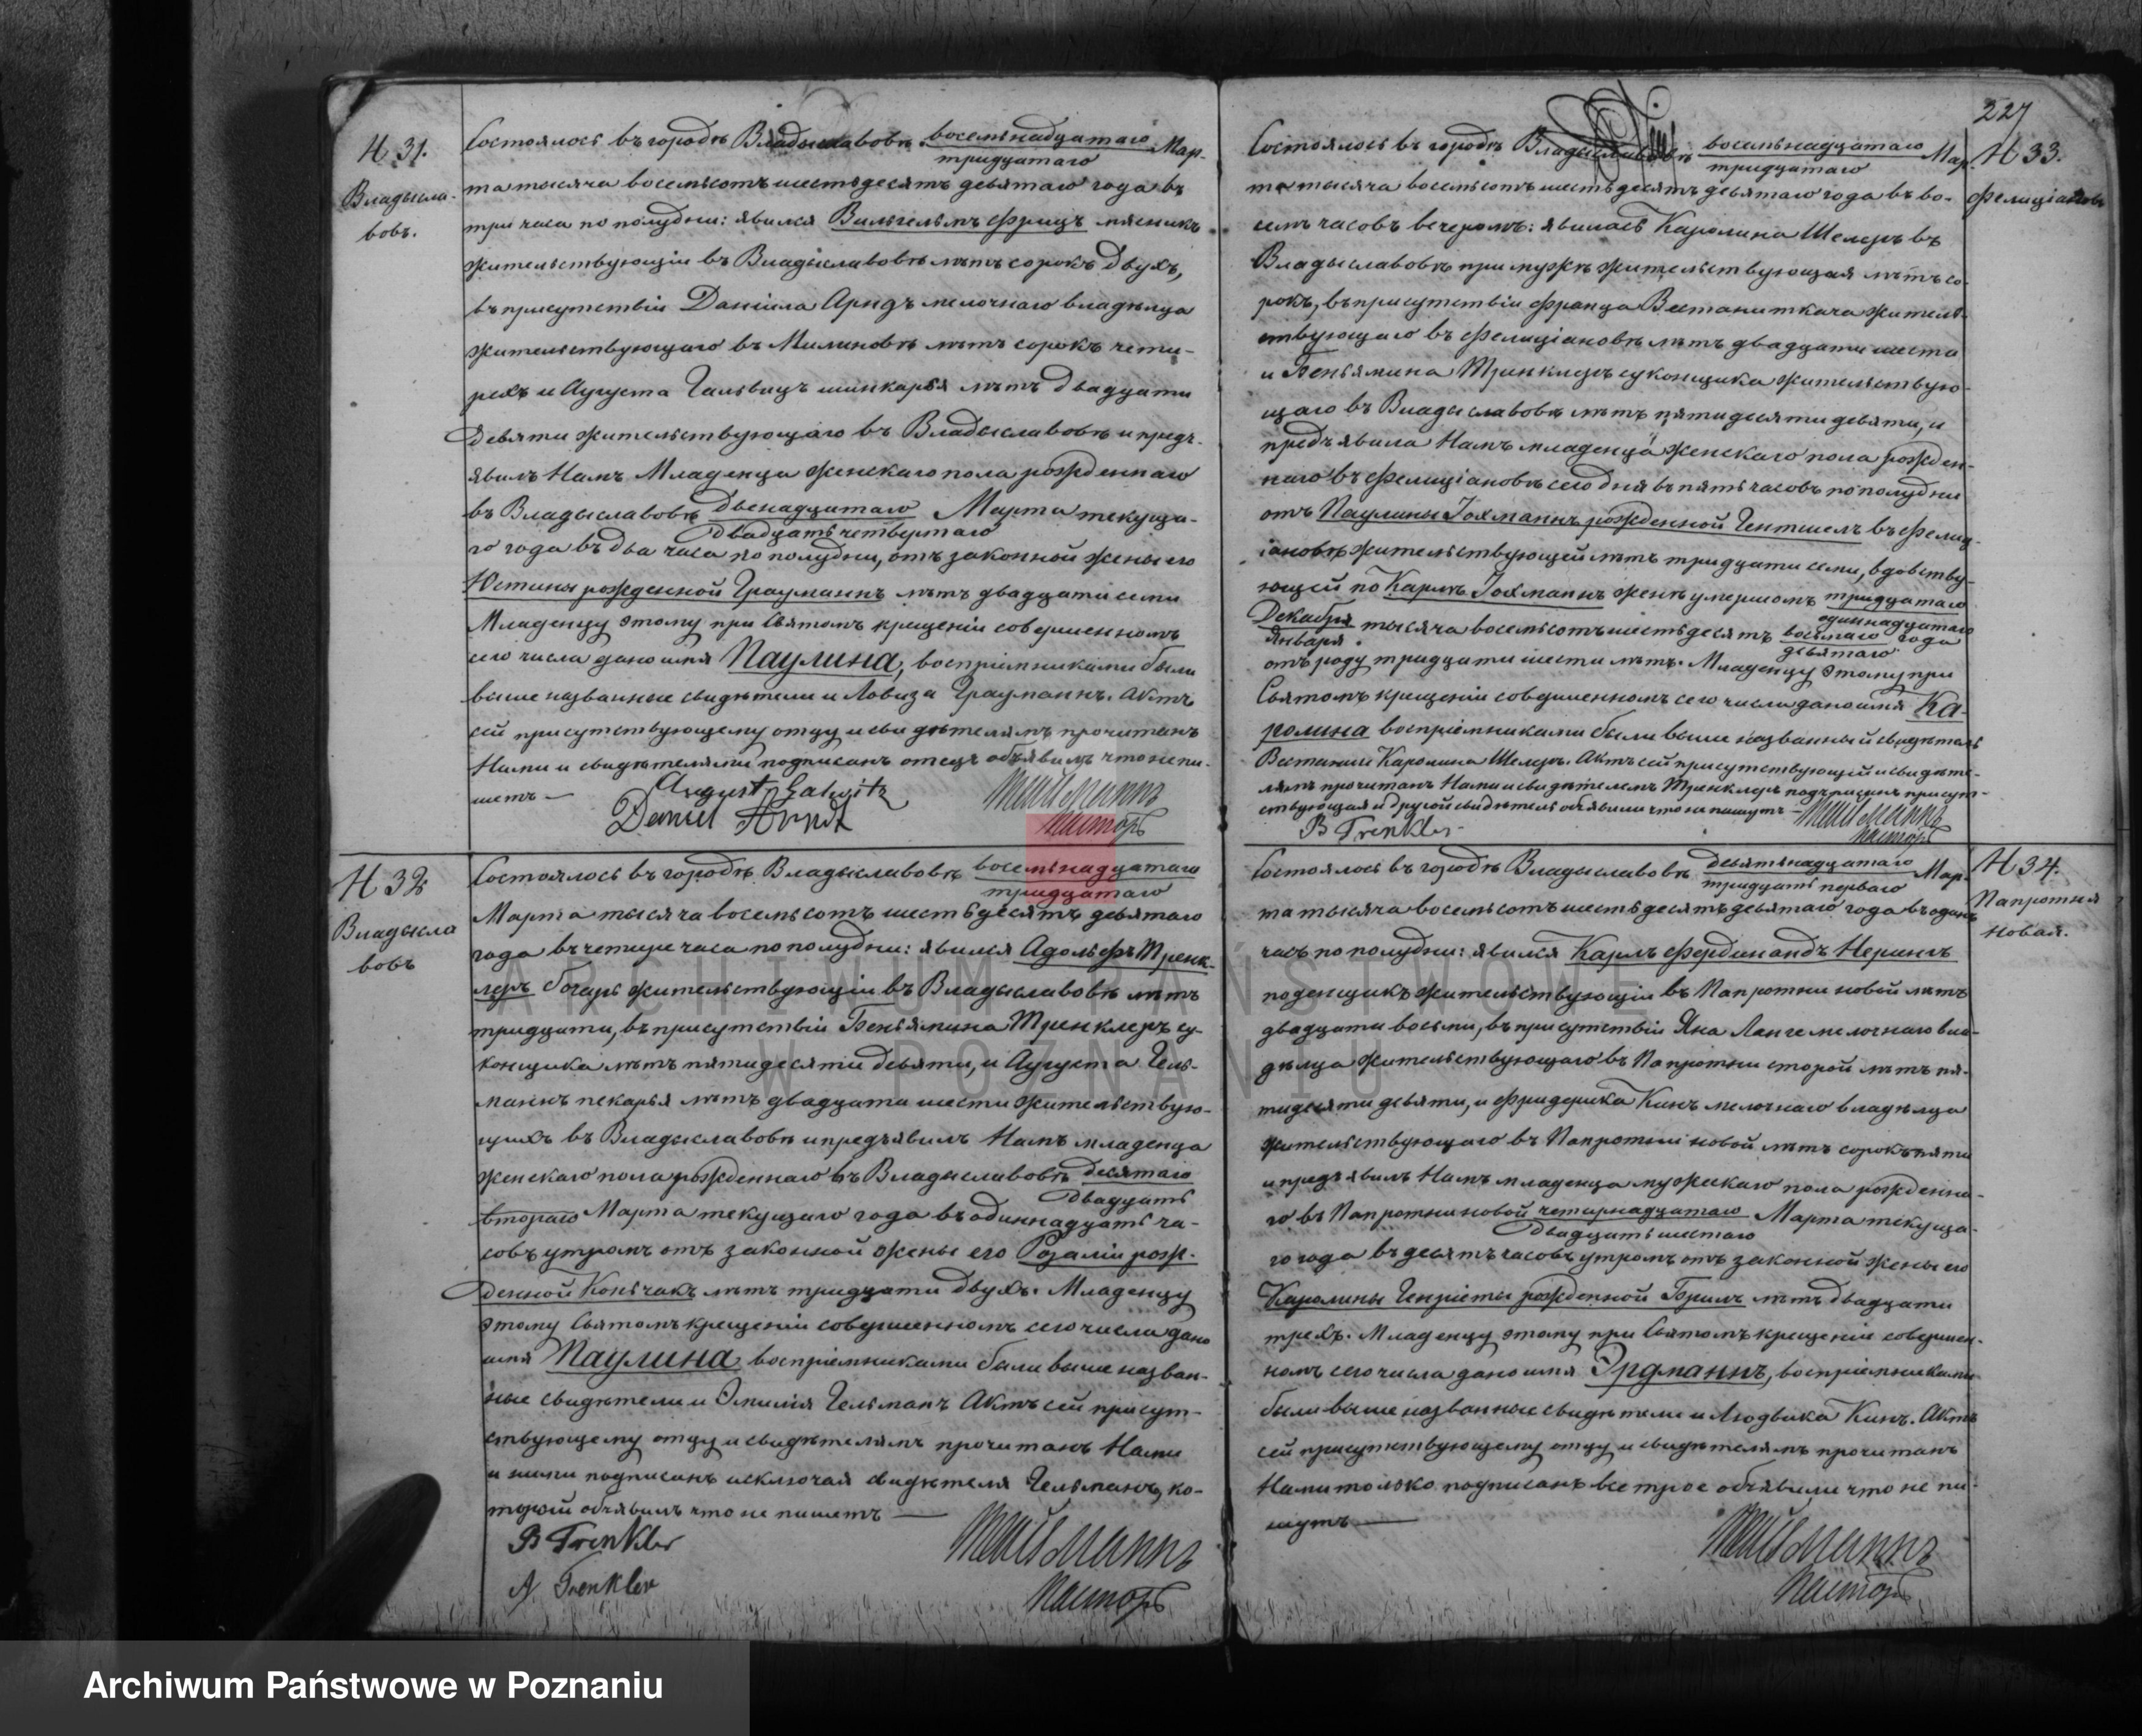 227
N 31.
Владысла-
вовъ.
Состоялось въ городѣ Владыславовѣ восемьнадцатаго Мар-
тридцатаго
та тысяча восемьсотъ шестьдесятъ девятаго года въ
три часа по полудни: явился Вильгельмъ Фрицъ мясникъ
жительствующiи въ Владыславовѣ лѣтъ сорокъ двухъ,
въ присутствiи Данiила Арндъ мелочнаго владѣльца
жительствующаго въ Милиновѣ лѣтъ сорокъ четы-
рехъ и Августа Гальвицъ шинкаря лѣтъ двадцати
девяти жительствующаго въ Владыславовѣ и предъ-
явилъ Намъ Младенца женскаго пола рожденнаго
въ Владыславовѣ двенадцатаго Марта текуща-
двадцать четвертаго
го года въ два часа по полудни, отъ законной жены его
Юстины рожденной Грауманнъ лѣтъ двадцати семи
Младенцу этому при Святомъ крещенiи совершенномъ
сего числа дано имя Паулина, воспрiемниками были
выше названные свидѣтели и Ловиза Грауманнъ. Актъ
сей присутствующему отцу и свидѣтелямъ прочитанъ
Нами и свидѣтелями подписанъ отецъ объявилъ что не пи-
шетъ —
August Galwitz
Daniel Arndt
Пасторъ
N 32
Владысла
вовъ
Состоялось въ городѣ Владыславовѣ восемьнадцатаго
тридцатаго
Марта тысяча восемьсотъ шестьдесятъ девятаго
года въ четыре часа по полудни: явился Адольфъ Тренк-
леръ бочаръ жительствующiи въ Владыславовѣ лѣтъ
тридцати, въ присутствiи Беньямина Тренклеръ су-
конщика лѣтъ пятидесяти девяти, и Августа Гель-
манъ пекаря лѣтъ двадцати шести жительствую-
щихъ въ Владыславовѣ и предъявилъ Намъ младенца
женскаго пола рожденнаго въ Владыславовѣ десятаго
двадцать
втораго Марта текущаго года въ одиннадцать ча-
совъ утромъ отъ законной жены его Розалiи рож-
денной Коньчакъ лѣтъ тридцати двухъ. Младенцу
этому Святомъ крещенiи совершенномъ сего числа дано
имя Паулина воспрiемниками были выше назван-
ные свидѣтели и Эмилiя Гельманъ Актъ сей присут-
ствующему отцу и свидѣтелямъ прочитанъ Нами
и ними подписанъ исключая свидѣтеля Гельманъ, ко-
торый объявилъ что не пишетъ —
B Trenkler
A Trenkler
Пасторъ
N 33.
Фелицiановъ
Состоялось въ городѣ Владыславовѣ восемьнадцатаго Мар-
тридцатаго
та тысяча восемьсотъ шестьдесятъ девятаго года въ во-
семъ часовъ вечеромъ: явилась Каролина Шелеръ въ
Владыславовѣ при мужѣ жительствующая лѣтъ со-
рокъ, въ присутствiи Франца Вестани ткача житель-
ствующаго въ Фелицiановѣ лѣтъ двадцати шести
и Беньямина Тренклеръ суконщика жительствую-
щаго въ Владыславовѣ лѣтъ пятидесяти девяти, и
предъявила Намъ младенца женскаго пола рожден-
наго въ Фелицiановѣ сего дня въ пять часовъ по полудни
отъ Паулины Iохманнъ рожденной Гентшелъ въ Фелиц-
iановѣ жительствующей лѣтъ тридцати семи, вдовству-
ющей по Карлѣ Iохманнъ женѣ умершомъ тридцатаго
одиннадцатаго
Декабря тысяча восемьсотъ шестьдесятъ восьмаго года
Января девятаго
отъ роду тридцати шести лѣтъ. Младенцу этому при
Святомъ крещенiи совершенномъ сего числа дано имя Ка-
ролина воспрiемниками были выше названный свидѣтель
Вестани и Каролина Шелеръ. Актъ сей присутствующiй и свидѣте-
лямъ прочитанъ Нами и свидѣтелемъ Тренклеръ подписанъ присут-
ствующая и другой свидѣтель объявили что не пишутъ —
B Trenkler
Пасторъ
N 34.
Папротня
новая.
Состоялось въ городѣ Владыславовѣ девятьнадцатаго Мар-
тридцать перваго
та тысяча восемьсотъ шестьдесятъ девятаго года въ одинъ
часъ по полудни: явился Карлъ Фердинандъ Нерингъ
поденщикъ жительствующiи въ Папротни новой лѣтъ
двадцати восьми, въ присутствiи Яна Ланге мелочнаго вла-
дѣльца жительствующаго въ Папротни старой лѣтъ пя-
тидесяти девяти, и Фридериха Кинъ мелочнаго владѣльца
жительствующаго въ Папротни новой лѣтъ сорокъ пяти
и предъявилъ Намъ младенца мужескаго пола рожденна-
го въ Папротни новой четырнадцатаго Марта текуща-
двадцать шестаго
го года въ десять часовъ утромъ отъ законной жены его
Каролины Генрiеты рожденной Бримъ лѣтъ двадцати
трехъ. Младенцу этому при Святомъ крещенiи совершен-
номъ сего числа дано имя Эрдманнъ, воспрiемниками
были выше названные свидѣтели и Людвика Кинъ. Актъ
сей присутствующему отцу и свидѣтелямъ прочитанъ
Нами только подписанъ все трое объявили что не пи-
шутъ —
Пасторъ
ARCHIWUM PAŃSTWOWE
W POZNANIU
Archiwum Państwowe w Poznaniu